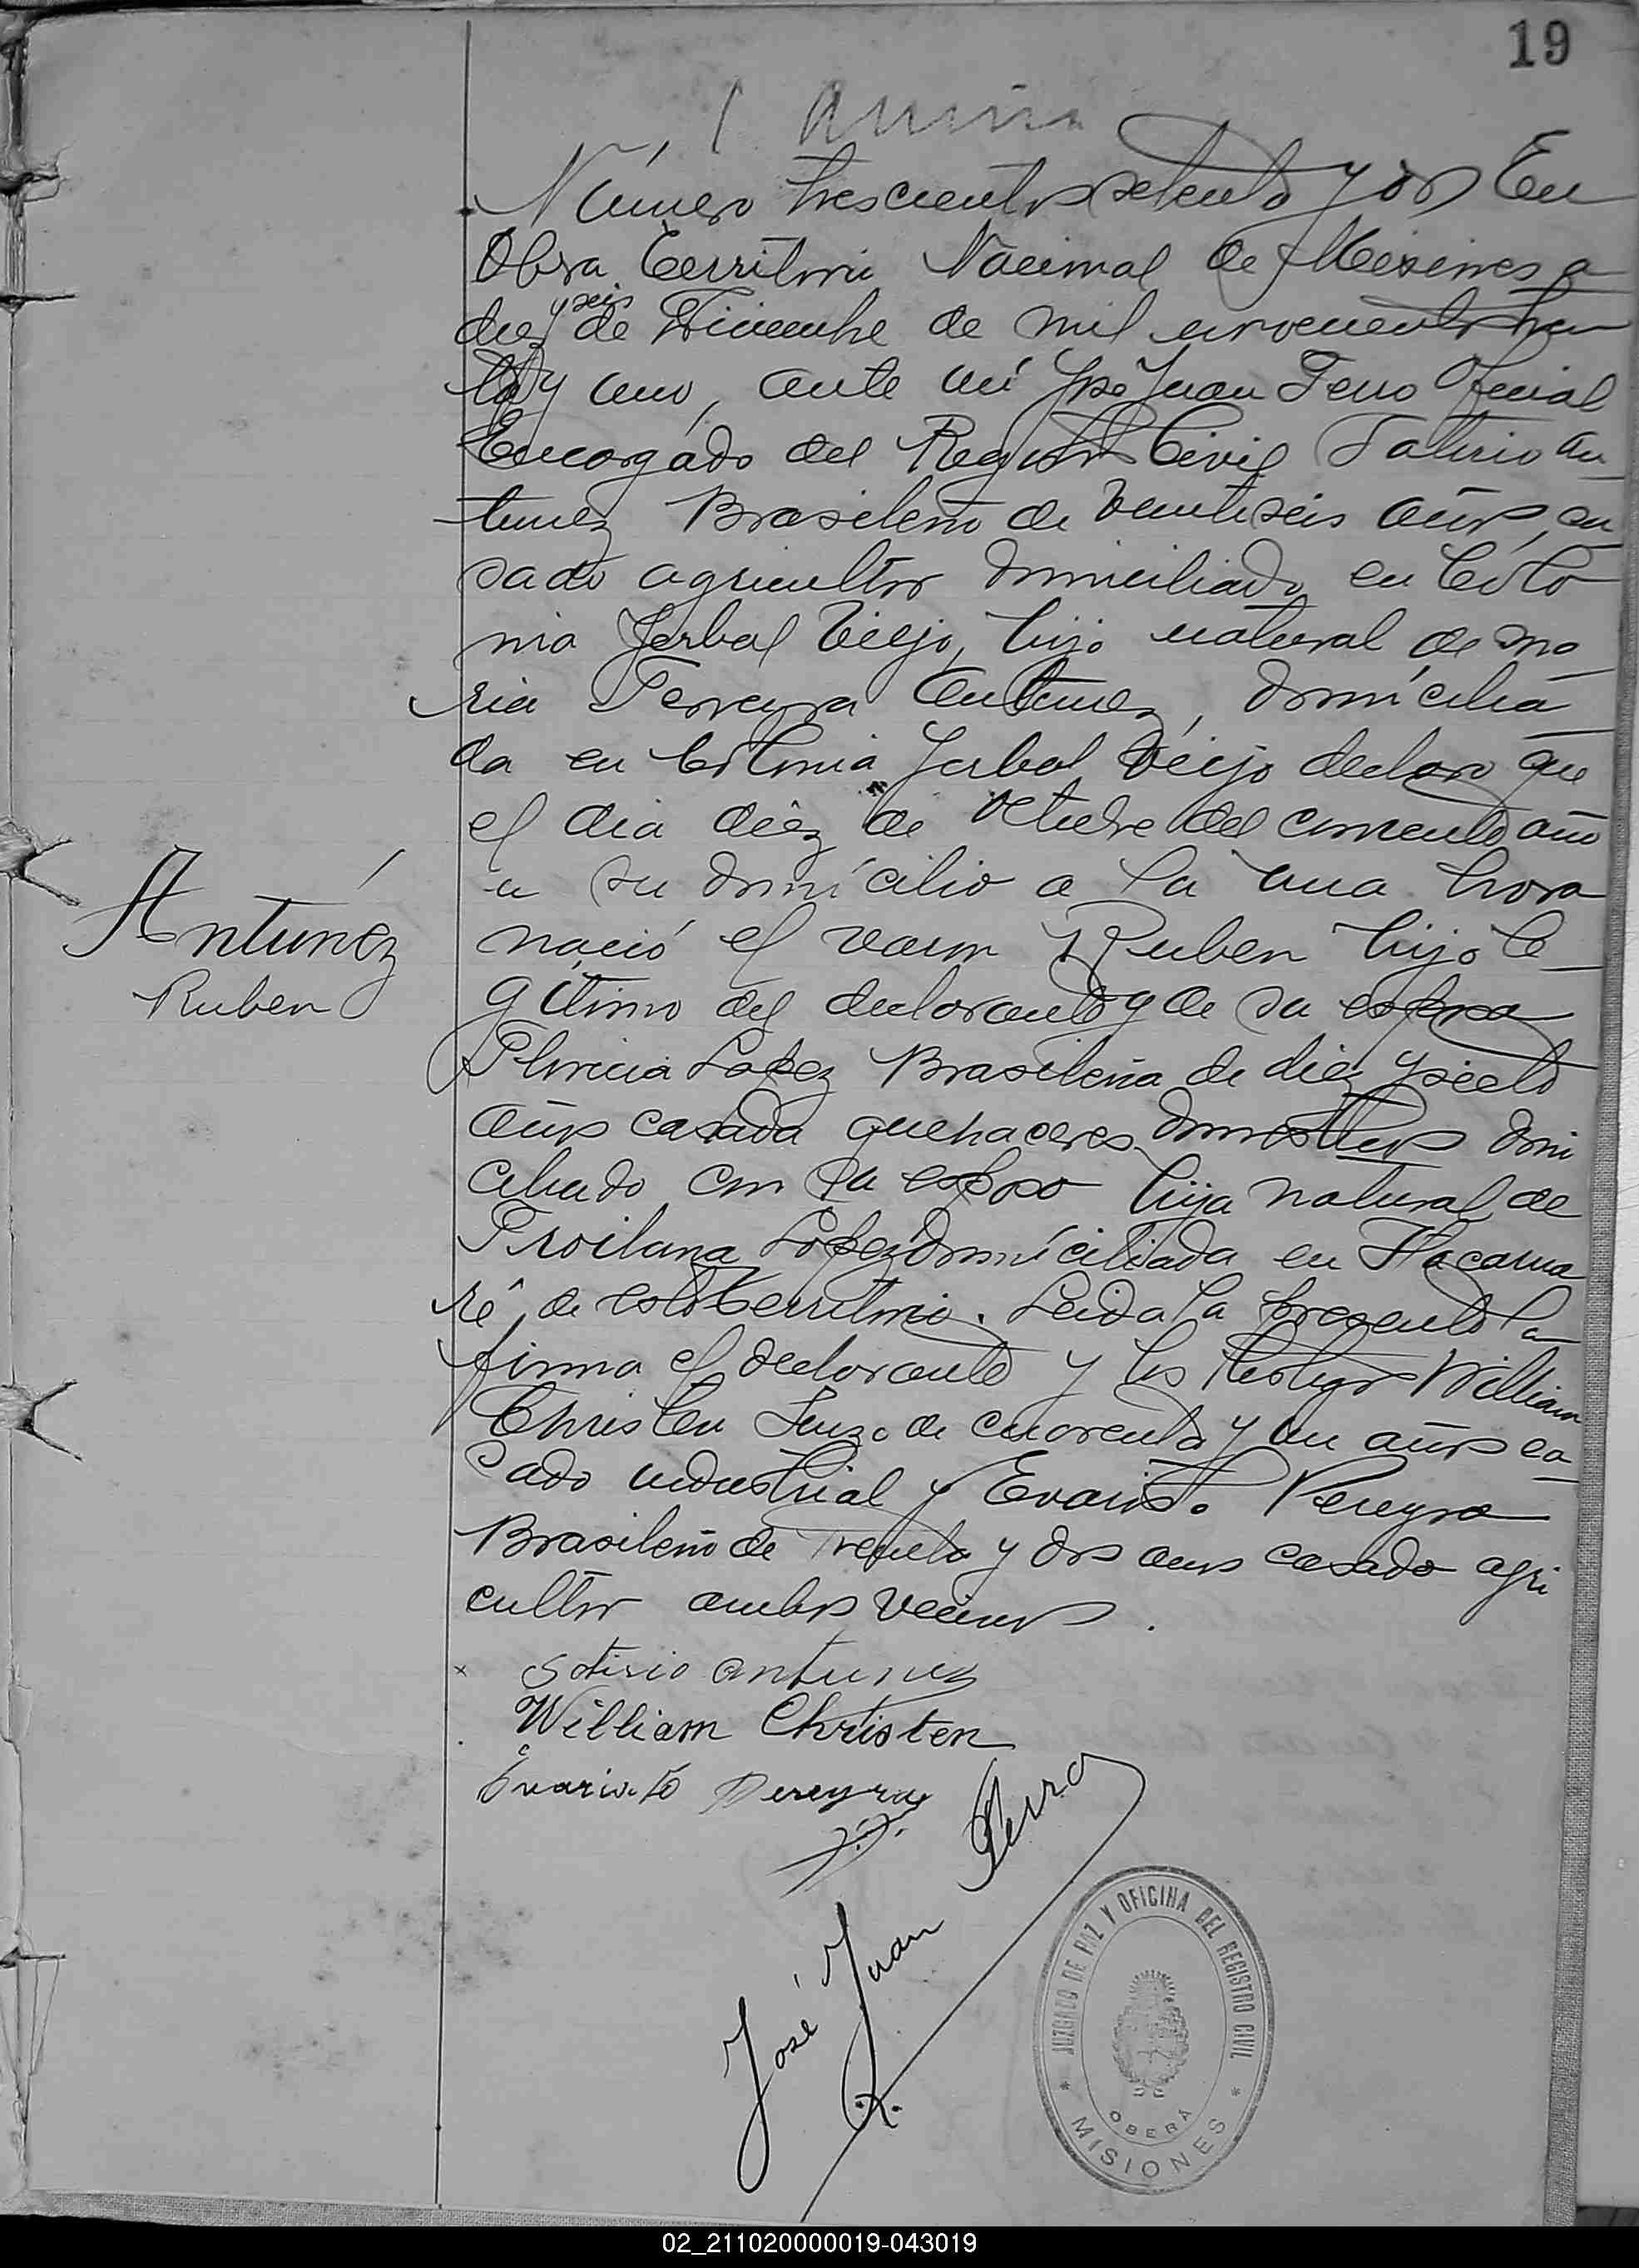 19
Número trescientos setenta y dos En
Obera Territorio Nacional de Misiones a
diez y seis de Diciembre de mil novecientos trein
ta y uno, ante mí José Juan Perro Oficial
Encargado del Registro Civil Satirio An
tunez Brasileño de veintiseis años, ca
sado agricultor domiciliado en Colo
nia Yerbal Viejo, hijo natural de Ma
ria Pereyra Antunez, domicilia
da en Colonia Yerbal Viejo declaro que
el dia diez de Octubre del corriente año
en su domicilio a la una hora
nació el varon Ruben hijo le
gitimo del declarante y de su esposa
Lopez Brasileña de diez y siete
años casada quehaceres domesticos domi
ciliado con su esposo hija natural de
Troilana Lopez domiciliada en Itacarua
ré, de este territorio. Leida la presente la
firma el declarante y los testigos William
Christen Suizo de cuarenta y un años ca
sado industrial y Evaristo Pereyra
Brasileño de treinta y dos años casado agri
cultor ambos vecinos.
Antúnez
Ruben
x Sotirio antunez
William Christen
Evaristo Pereyra
José Juan Perro
JUZGADO DE PAZ Y OFICINA DEL REGISTRO CIVIL
OBERÁ
* MISIONES *
02_211020000019-043019